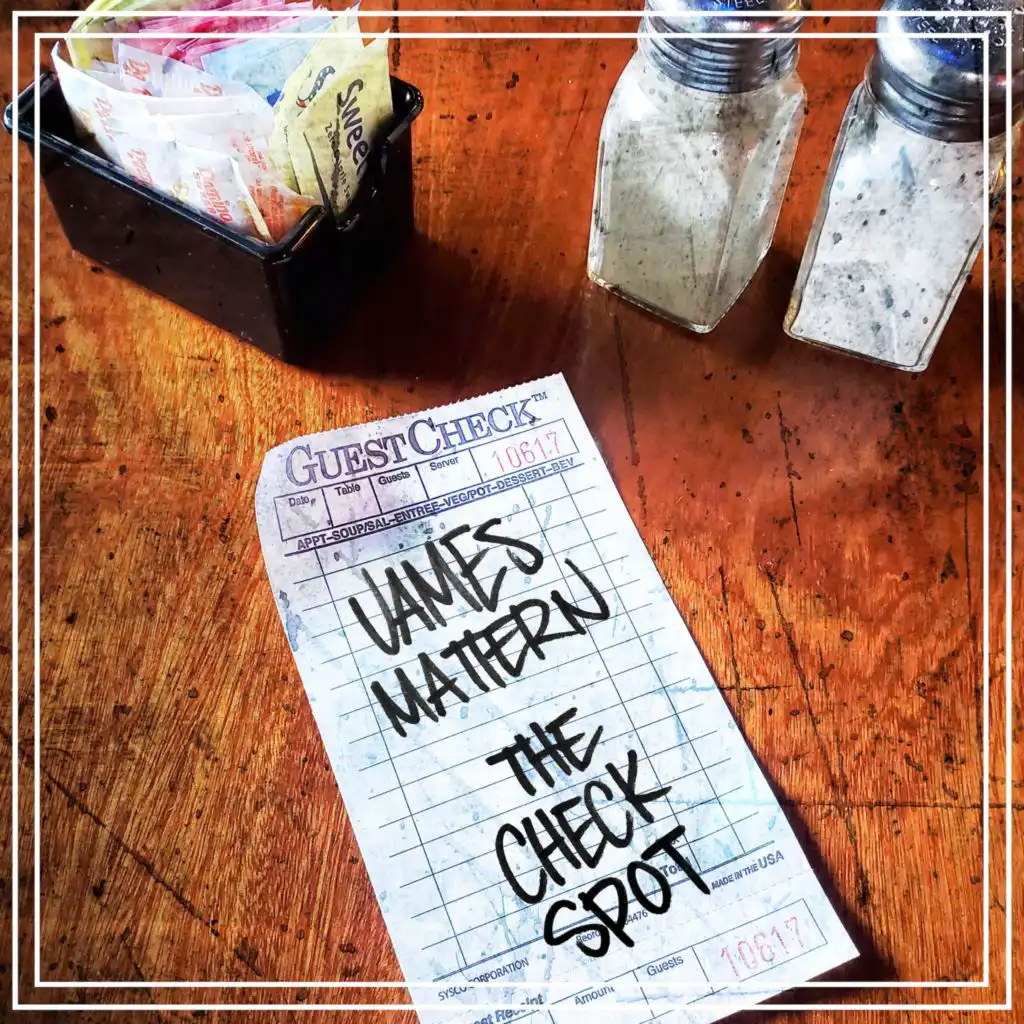 Sweet
GUEST CHECK™
Date Table Guests Server 10617
APPT-SOUP/SAL-ENTREE-VEG/POT-DESSERT-BEV
JAMES
MATTERN
THE
CHECK
SPOT
MADE IN THE USA
SYSCO CORPORATION
Guests 10617
Amount